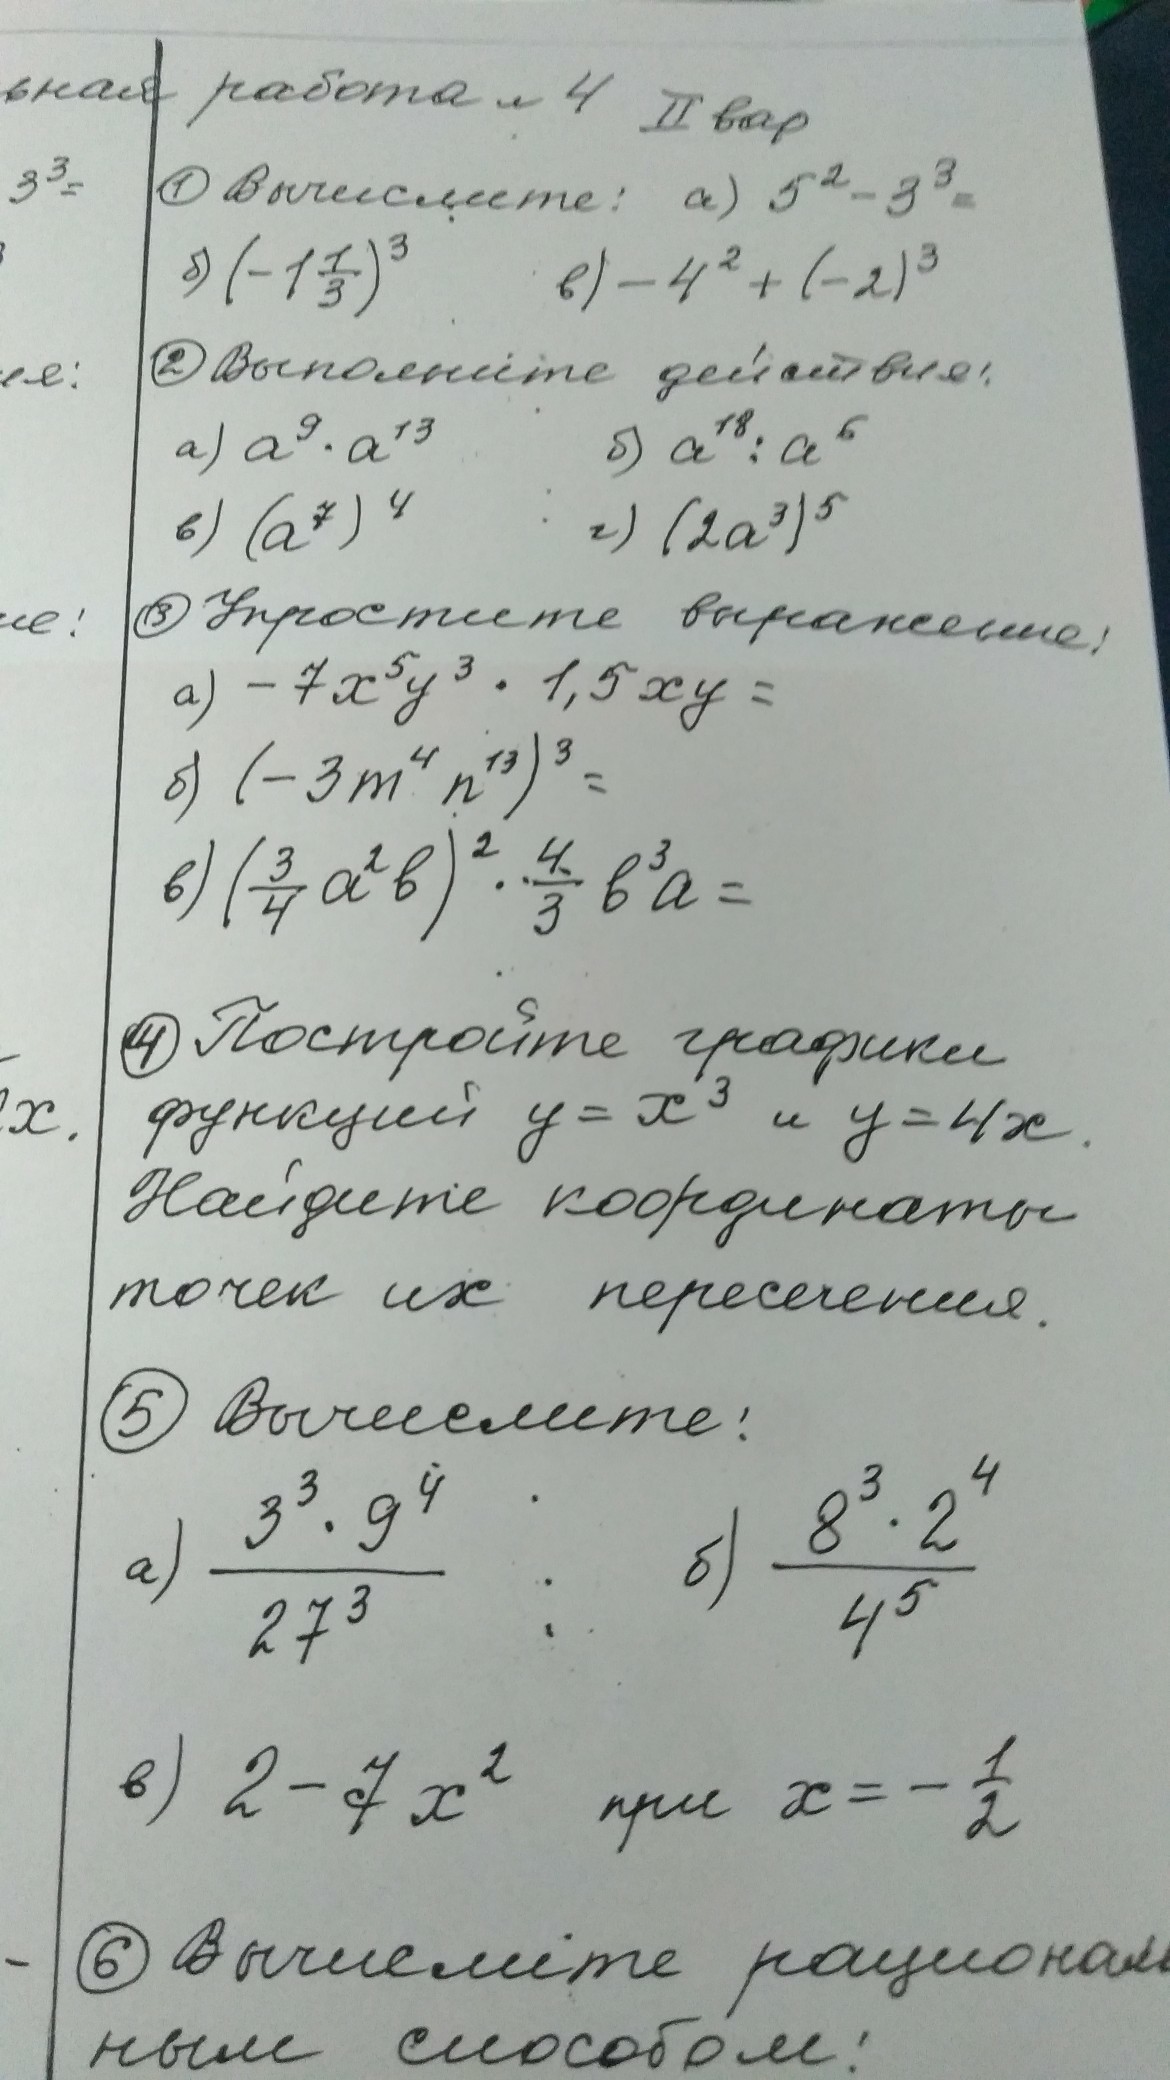 ьная работа № 4 II вар
3³=
① Вычислите: а) 5² - 3³ =
б) (-1 1/3)³ в) -4² + (-2)³
ия:
② Выполните действия:
а) a⁹ · a¹³ б) a¹⁸ : a⁶
в) (a⁷)⁴ г) (2a³)⁵
ие:
③ Упростите выражение:
а) -7x⁵y³ · 1,5xy =
б) (-3m⁴n¹³)³ =
в) (3/4 a²b)² · 4/3 b³a =
④ Постройте графики
х.
функций y = x³ и y = 4x.
Найдите координаты
точек их пересечения.
⑤ Вычислите:
а) 3³ · 9⁴ / 27³ б) 8³ · 2⁴ / 4⁵
в) 2 - 7x² при x = -1/2
⑥ Вычислите рациональ
ным способом: